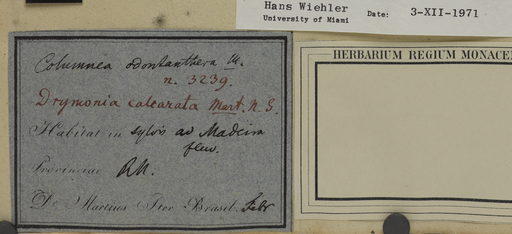 Hans Wiehler
University of Miami Date: 3-XII-1971
HERBARIUM REGIUM MONACE
Columnea odontanthera M.
n. 3239.
Drymonia calcarata Mart. N. G.
Habitat in sylvis ad Madeira
fluv.
Provinciae R.N.
Dr. Martius Iter Brasil. Febr